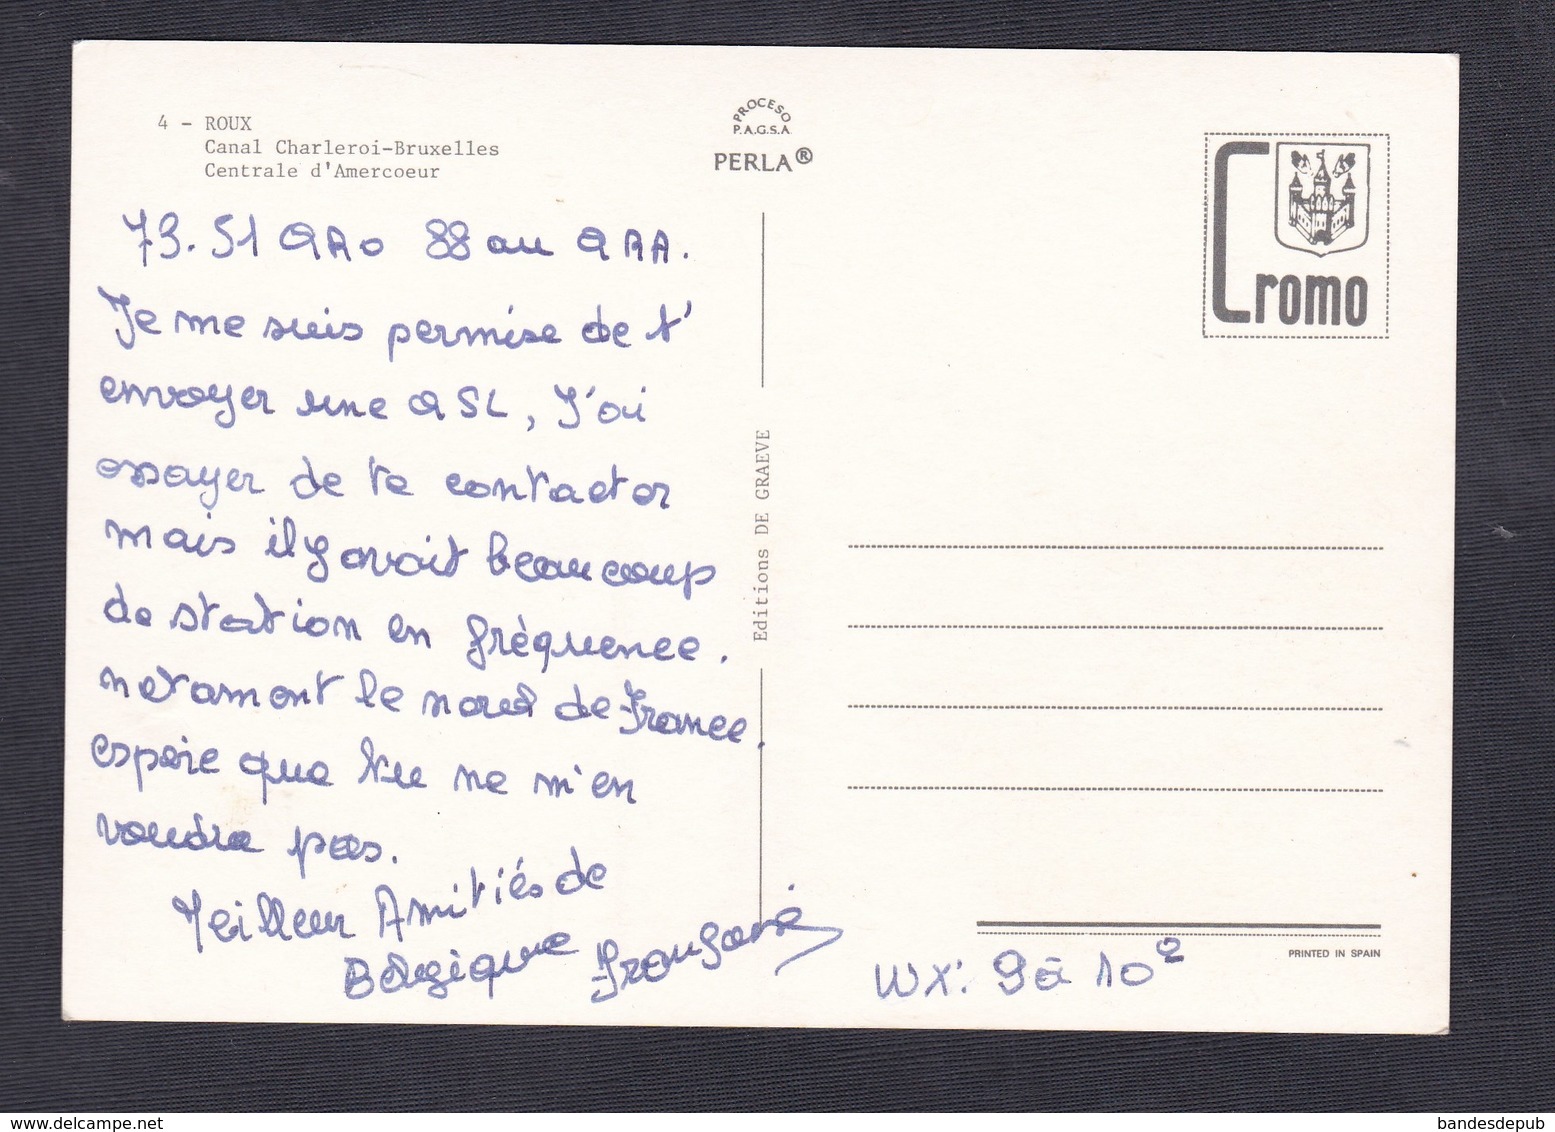 4 - ROUX
Canal Charleroi-Bruxelles
Centrale d'Amercoeur
PROCESO
P.A.G.S.A
PERLA®
Cromo
73.51 QRO 88 au QRA.
Je me suis permise de t'
envoyer une QSL, J'ai
essayer de te contacter
mais il y avait beaucoup
de station en fréquence.
notament le nord de France.
espère que tu ne m'en
voudra pas.
Meilleur Amitiés de
Belgique
Editions DE GRAEVE
PRINTED IN SPAIN
WX: 9 à 10²
bandesdepub